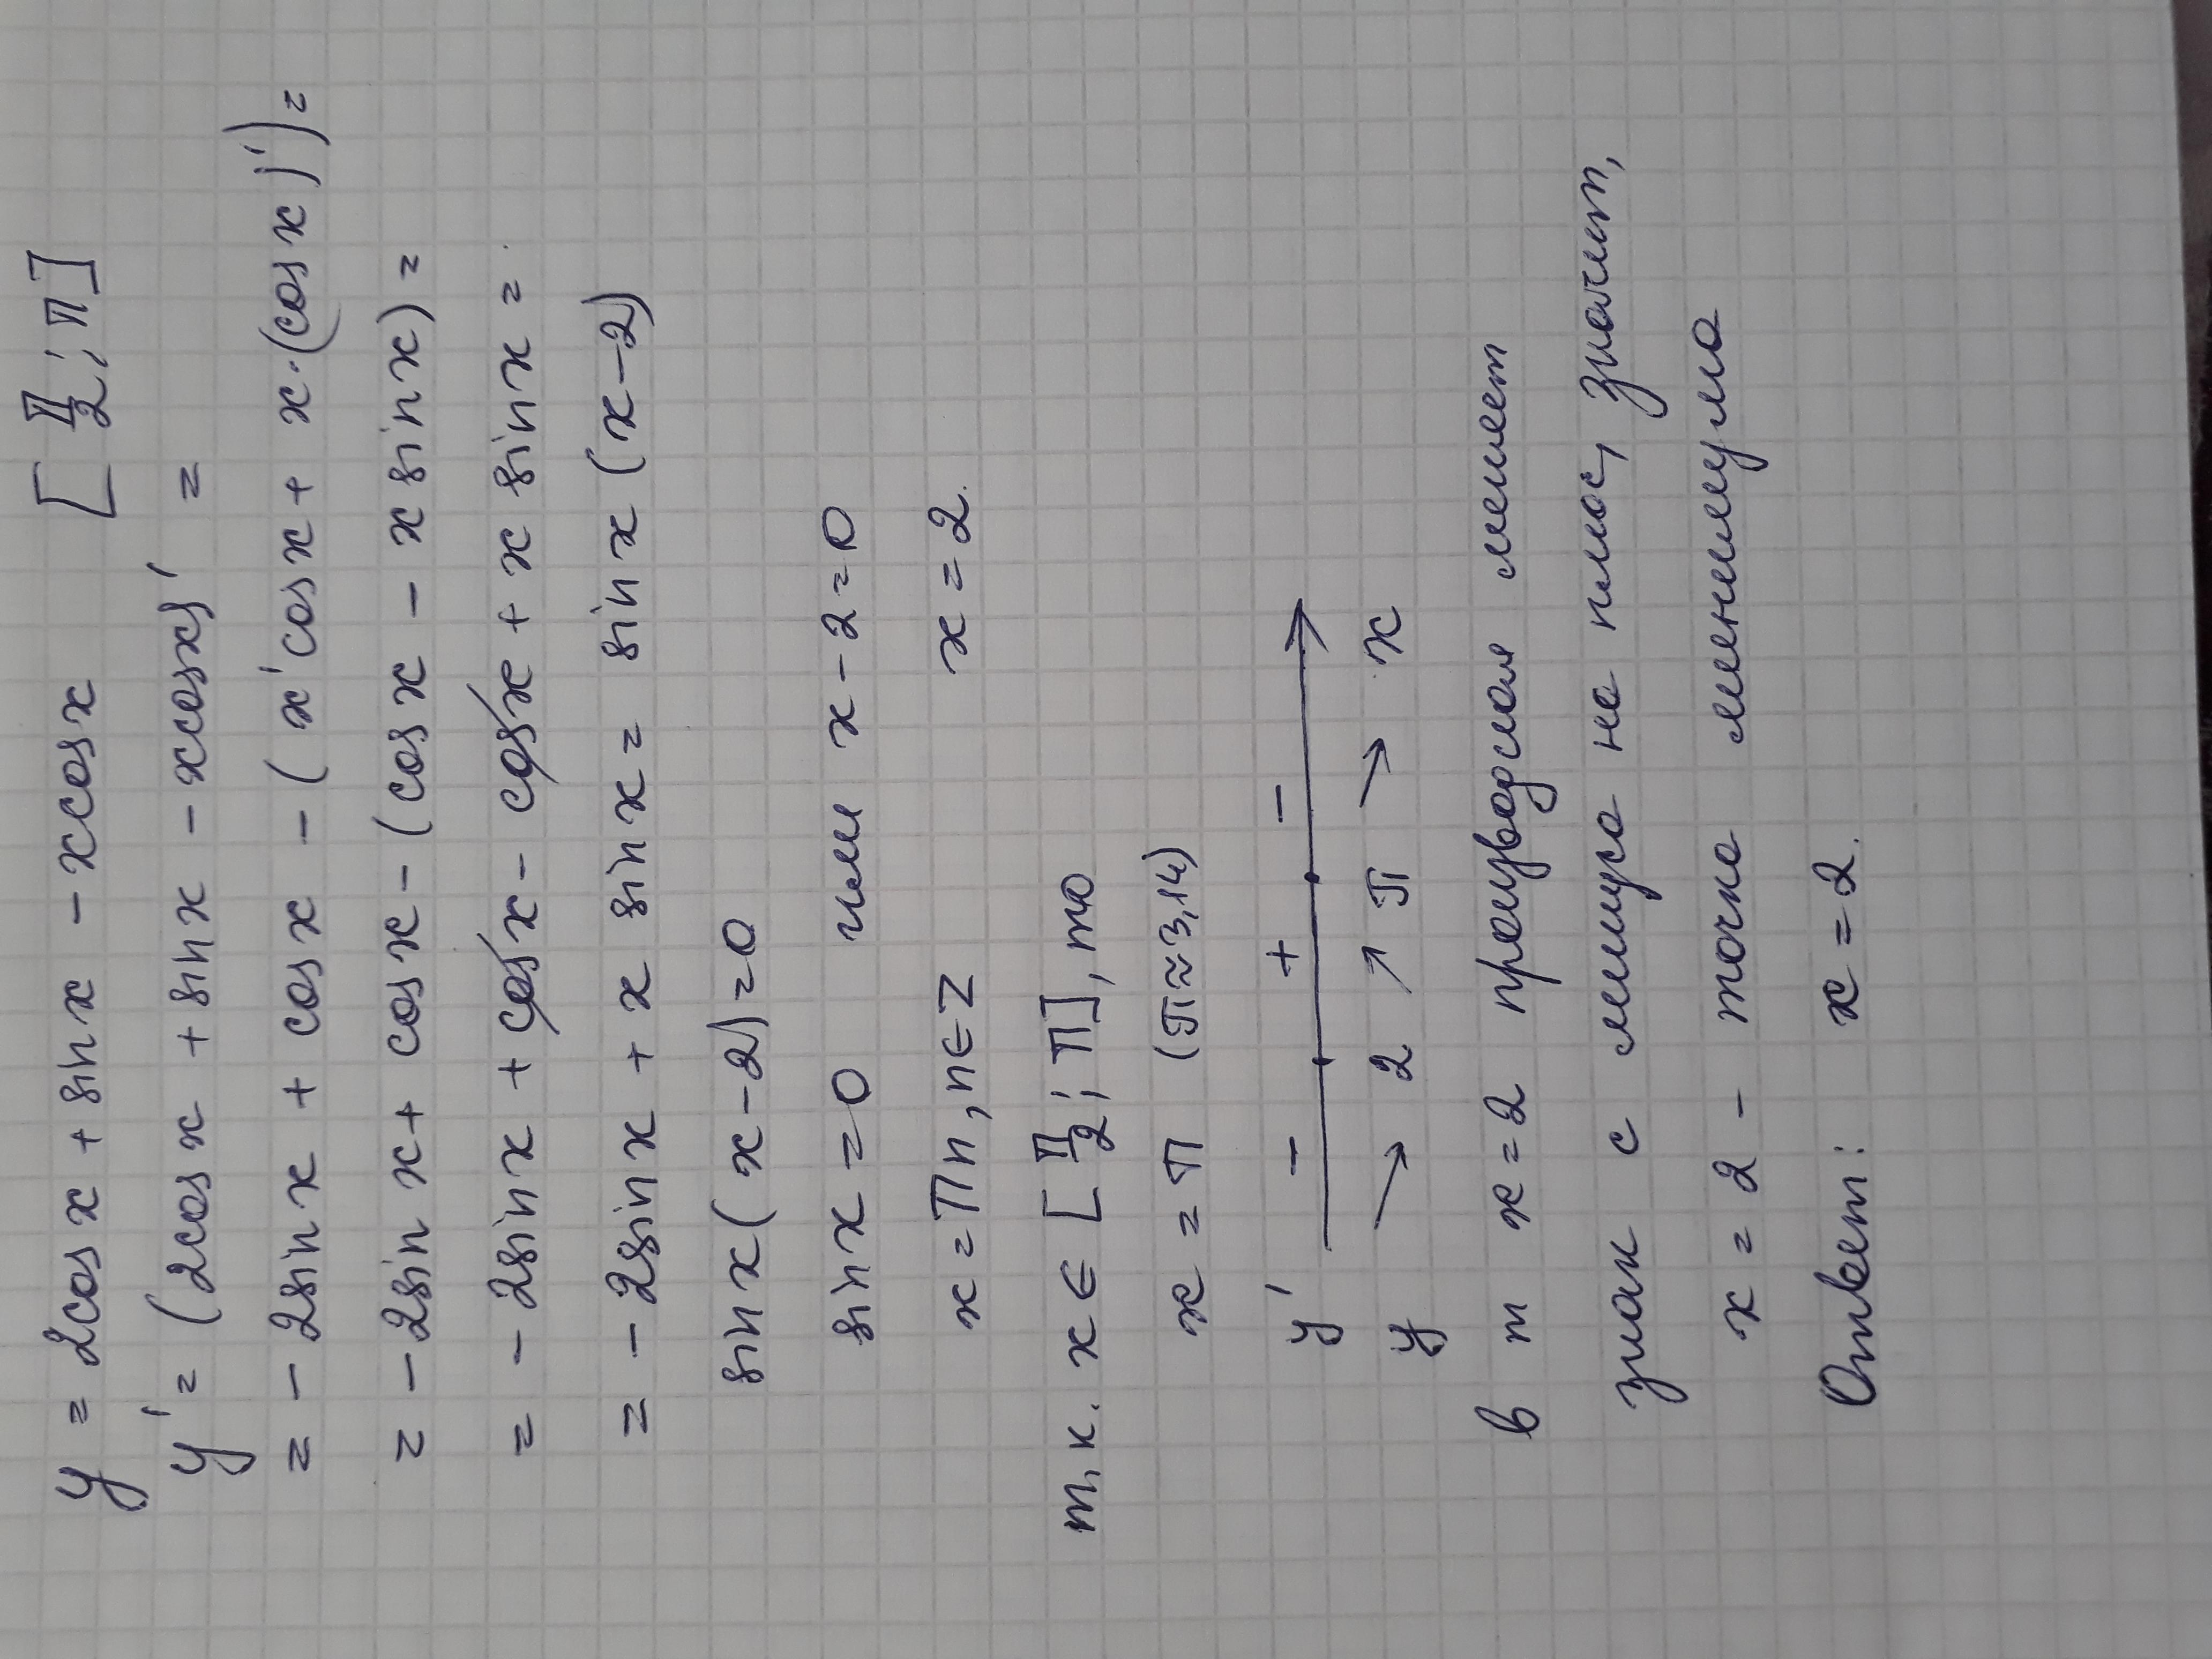 y = 2cos x + sin x - x cos x [π/2; π]
y' = (2cos x + sin x - x cos x)' =
= - 2sin x + cos x - (x' cos x + x·(cos x)') =
= - 2sin x + cos x - (cos x - x sin x) =
= - 2sin x + cos x - cos x + x sin x =
= - 2sin x + x sin x = sin x (x-2)
sin x (x-2) = 0
sin x = 0 или x-2=0
x = πn, n∈Z x = 2.
т.к. x ∈ [π/2; π], то
x = π (π≈3,14)
y' - + -
y ↘ 2 ↗ π ↘ x
в т x=2 производная меняет
знак с минуса на плюс, значит,
x = 2 - точка минимума
Ответ: x = 2.